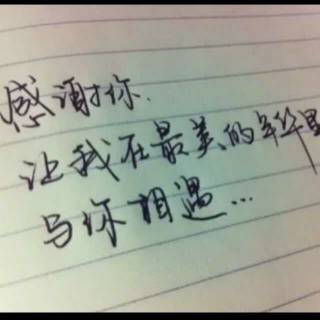 感谢你.
让我在最美的年华里
与你相遇...